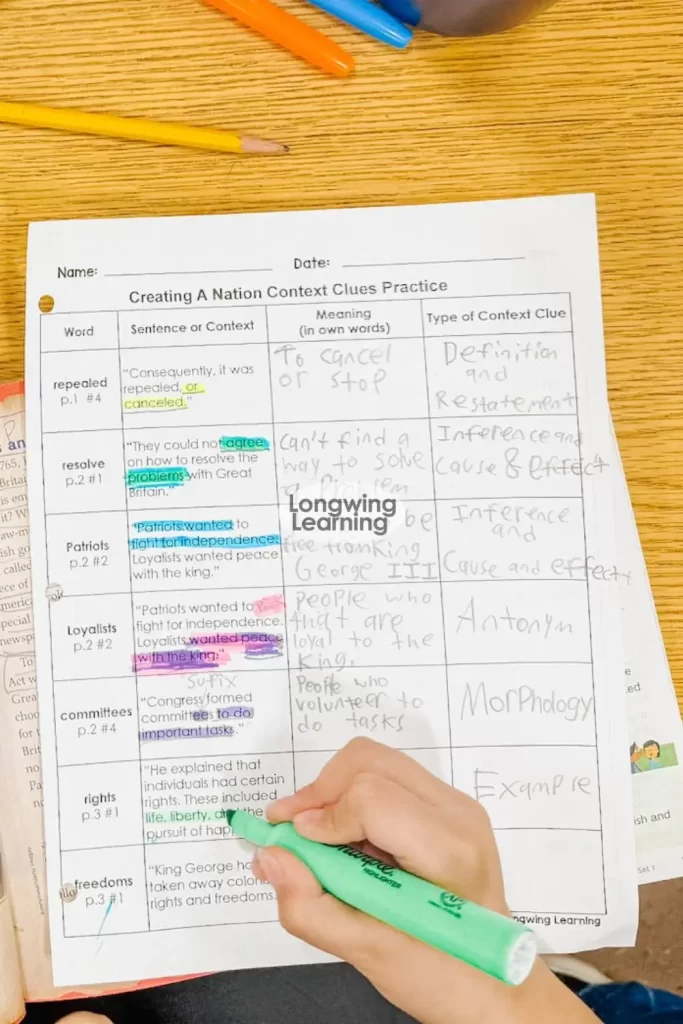 Name: Date:
Creating A Nation Context Clues Practice
Word
Sentence or Context
Meaning
(in own words)
Type of Context Clue
repealed
p.1 #4
"Consequently, it was
repealed, or
canceled."
To cancel
or stop
Definition
and
Restatement
resolve
p.2 #1
"They could not agree
on how to resolve the
problems with Great
Britain."
Can't find a
way to solve
Inference and
Cause & effect
Patriots
p.2 #2
"Patriots wanted to
fight for independence.
Loyalists wanted peace
with the king."
be
free from King
George III
Inference
and
Cause and effect
Longwing
Learning
Loyalists
p.2 #2
"Patriots wanted to
fight for independence.
Loyalists wanted peace
with the king."
People who
that are
loyal to the
King.
Antonym
committees
p.2 #4
Suffix
"Congress formed
committees to do
important tasks."
People who
volunteer to
do tasks
Morphology
rights
p.3 #1
"He explained that
individuals had certain
rights. These included
life, liberty, the
pursuit of
Example
freedoms
p.3 #1
"King George
taken away
rights and freedoms.
Learning
HIGHLIGHTER
ish and
Set 1